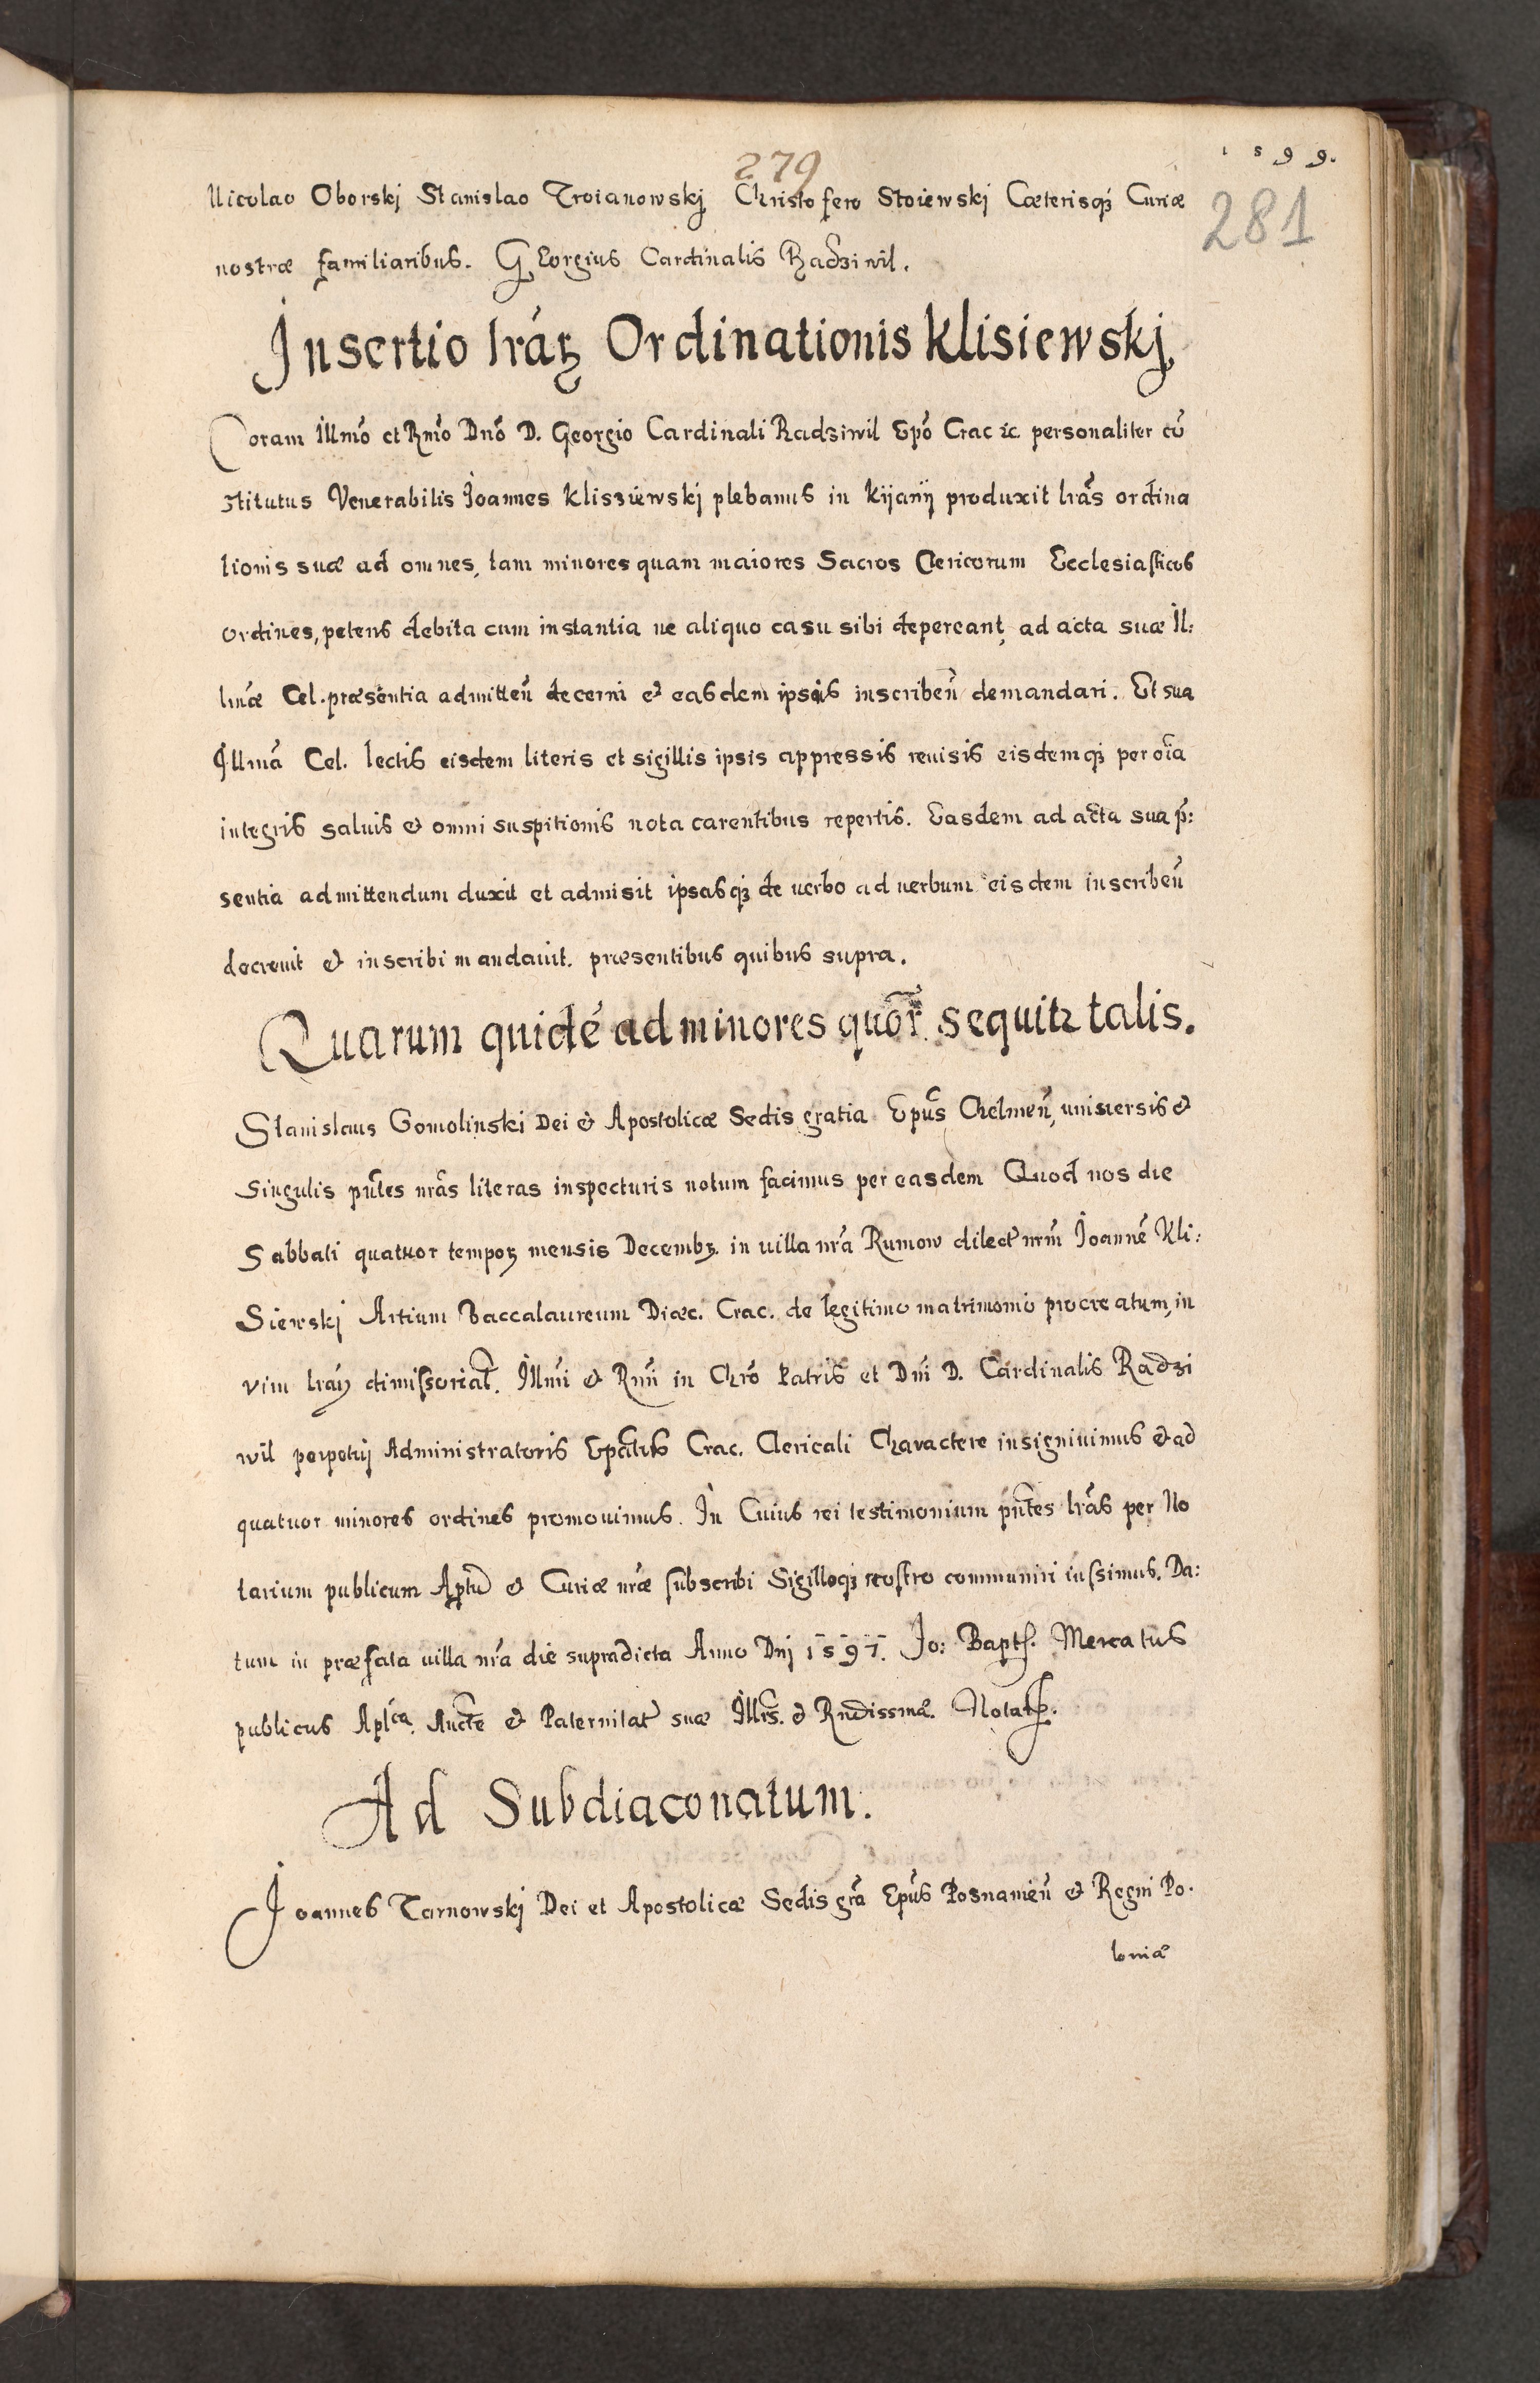 1599.
279
281
Nicolao Oborskj Stanislao Troianowskj Christofero Stoiewskj Cæterisqꝫ Curiæ
nostræ familiaribus. GEorgius Cardinalis Radziwil.
Insertio lrárꝫ Ordinationis Klisiewskj
Coram Illmō et Rmō Dnō D. Georgio Cardinali Radziwil Epō Crac &c. personaliter cō
stitutus Venerabilis Ioannes Kliszÿewskj plebanus in Kijanÿ produxit lrās ordina
tionis suæ ad omnes, tam minores quam maiores Sacros Clericorum Ecclesiasticos
ordines, petens debita cum instantia ne aliquo casu sibi depereant, ad acta suæ Il:
lmæ Cel. præsentia admitteñ decerni & easdem ipsis inscribeñ demandari. Et sua
Illmā Cel. lectis eisdem literis et sigillis ipsis appressis reuisis eisdemqꝫ per oīa
integris saluis & omni suspitionis nota carentibus repertis. Easdem ad acta sua p̄:
sentia admittendum duxit et admisit ipsasqꝫ de verbo ad verbum eisdem inscribeñ
decreuit & inscribi mandauit. præsentibus quibus supra.
Quarum quidé ad minores quōr. sequitꝛ talis.
Stanislaus Gomolinski Dei & Apostolicæ Sedis gratia Epūs Chelmeñ, uniuersis &
Singulis pñtes nrās literas inspecturis notum facimus per easdem Quod nos die
Sabbati quatuor tempoꝝ mensis Decembꝝ. in uilla nrā Rumow dilect nrm̄ Ioannē Kli:
Siewskj Artium Baccalaureum Diæc. Crac. de legitimo matrimonio procreatum, in
vim lraꝝ dimissorial. Illmi & Rmi in Chrō Patris et Dnī D. Cardinalis Radzi
wil perpetuj Administratoris Epatus Crac. Clericali Charactere insigniuimus & ad
quatuor minores ordines promouimus. In Cuius rei testimonium pñtes lrās per No
tarium publicum Aplcū & Curiæ nræ subscribi Sigilloqꝫ nostro communiri iussimus. Da:
tum in præfata uilla nrā die supradicta Anno Dnj 1597. Io: Baptꝭ. Mercatus
publicus Aplca. Aucte & Paternitat suæ Illis. & Rndissmæ. Notarꝭ.
Ad Subdiaconatum.
Joannes Tarnowskj Dei et Apostolicæ Sedis grā Epūs Posnanieñ & Regni Po.
loniæ